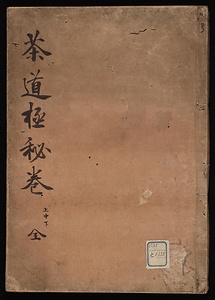 茶道極秘巻
上中下
全